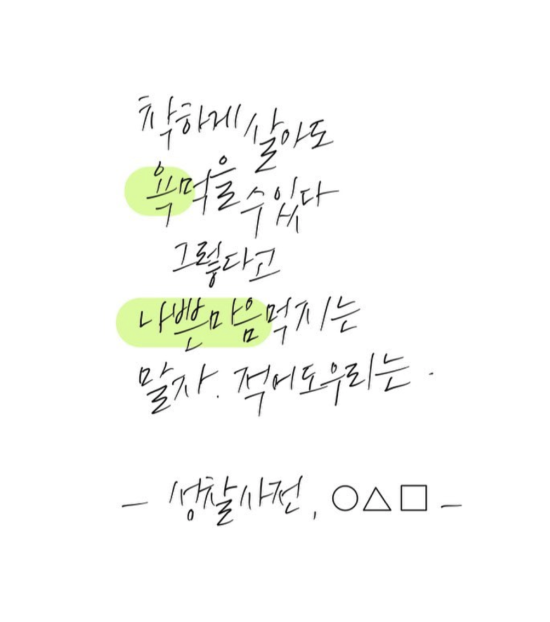 착하게 살아도
욕먹을 수 있다
그렇다고
나쁜마음먹지는
말자. 적어도우리는.
- 성찰사전, ○△□ -